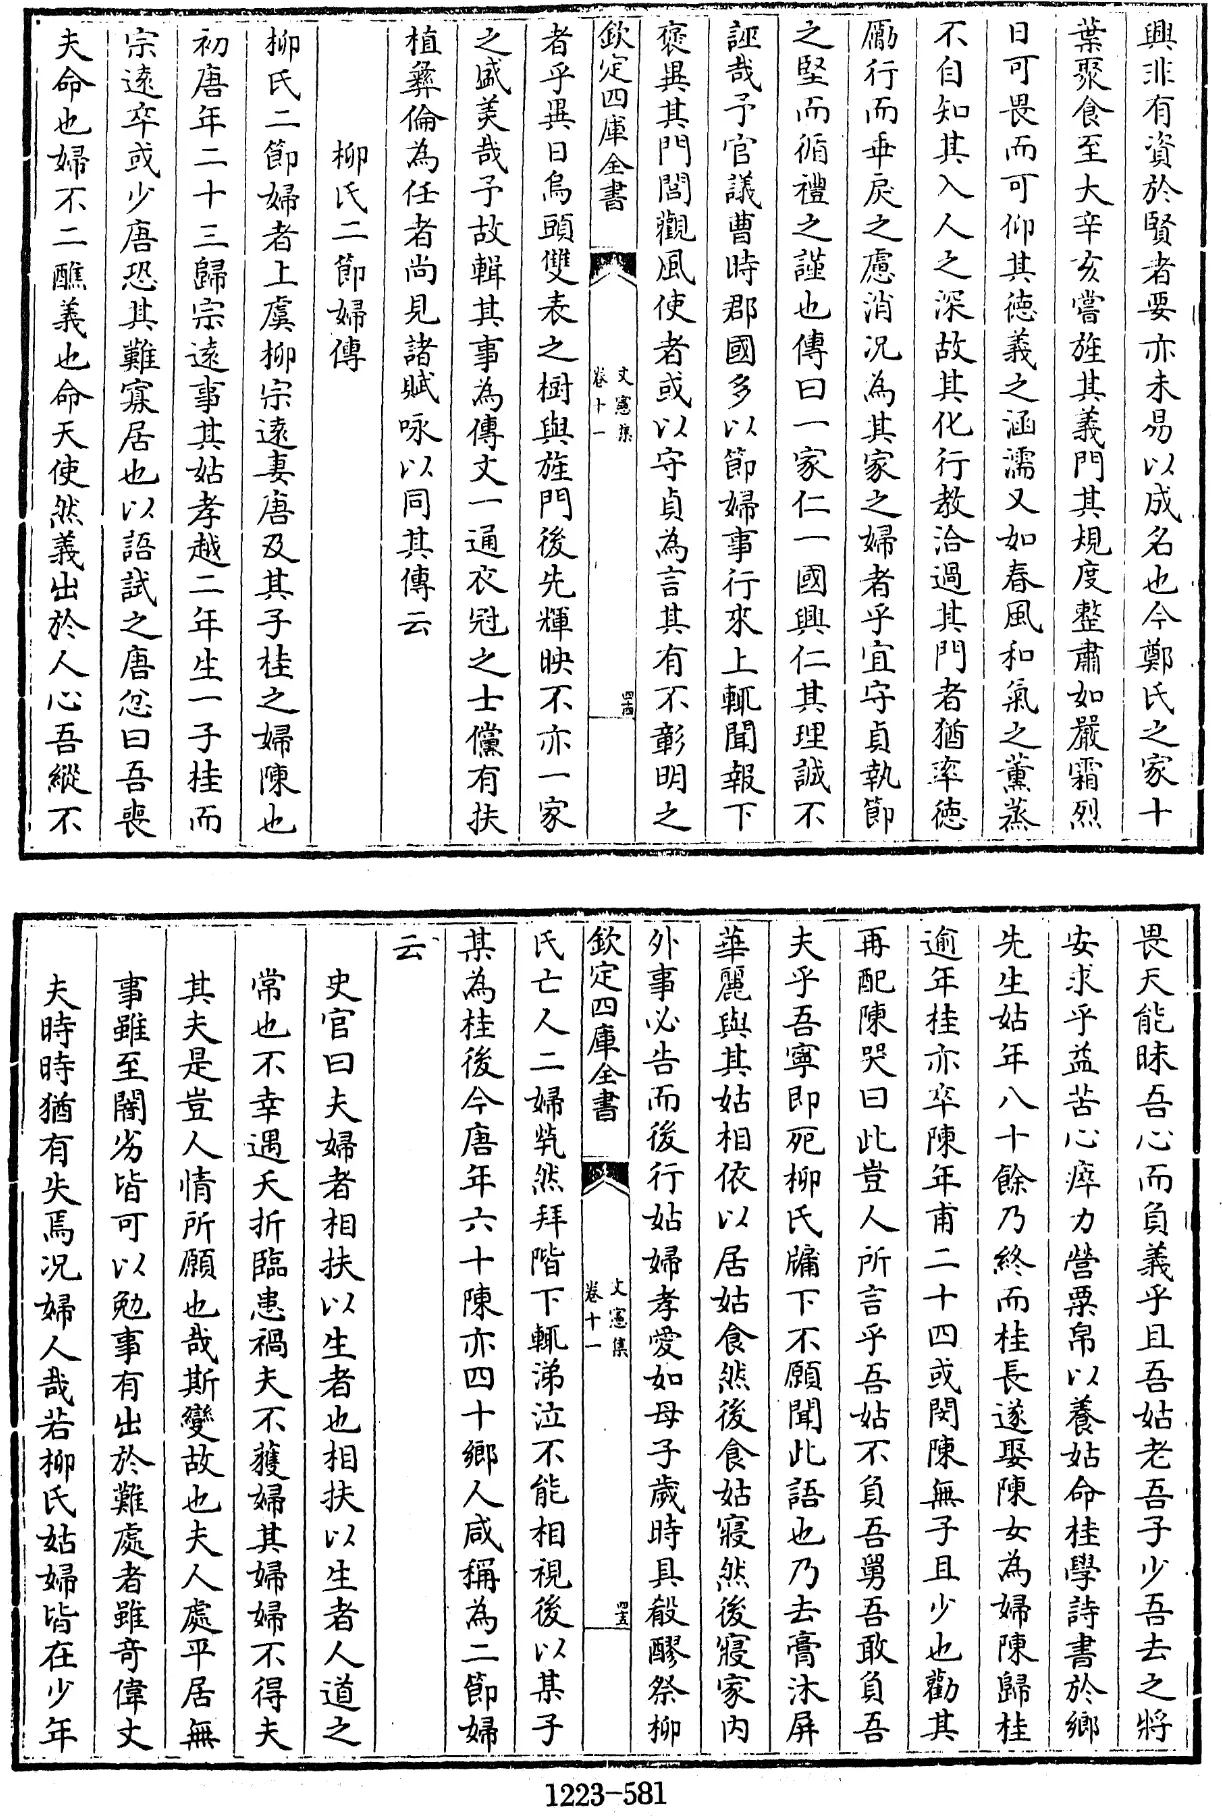 興非有資於賢者要亦未易以成名也今鄭氏之家十
葉聚食至大辛亥嘗旌其義門其規度整肅如嚴霜烈
日可畏而可仰其德義之涵濡又如春風和氣之薰蒸
不自知其入人之深故其化行教洽過其門者猶率德
勵行而垂戾之慮消况為其家之婦者乎宜守貞執節
之堅而循禮之謹也傳曰一家仁一國興仁其理誠不
誣哉予官議曹時郡國多以節婦事行來上輒聞報下
褒異其門閭觀風使者或以守貞為言其有不彰明之
欽定四庫全書
文憲集
卷十一
四十四
者乎異日烏頭雙表之樹與旌門後先輝映不亦一家
之盛美哉予故輯其事為傳文一通衣冠之士儻有扶
植彛倫為任者尚見諸賦咏以同其傳云
柳氏二節婦傳
柳氏二節婦者上虞柳宗遠妻唐及其子桂之婦陳也
初唐年二十三歸宗遠事其姑孝越二年生一子桂而
宗遠卒或少唐恐其難寡居也以語試之唐忿曰吾喪
夫命也婦不二醮義也命天使然義出於人心吾縱不
畏天能昧吾心而負義乎且吾姑老吾子少吾去之將
安求乎益苦心瘁力營粟帛以養姑命桂學詩書於鄉
先生姑年八十餘乃終而桂長遂娶陳女為婦陳歸桂
逾年桂亦卒陳年甫二十四或閔陳無子且少也勸其
再配陳哭曰此豈人所言乎吾姑不負吾舅吾敢負吾
夫乎吾寧即死柳氏牗下不願聞此語也乃去膏沐屏
華麗與其姑相依以居姑食然後食姑寢然後寢家内
外事必告而後行姑婦孝愛如母子歲時具殽醪祭柳
欽定四庫全書
文憲集
卷十一
四十五
氏亡人二婦煢然拜階下輒涕泣不能相視後以某子
某為桂後今唐年六十陳亦四十鄉人咸稱為二節婦
云
史官曰夫婦者相扶以生者也相扶以生者人道之
常也不幸遇夭折臨患禍夫不獲婦其婦婦不得夫
其夫是豈人情所願也哉斯變故也夫人處平居無
事雖至闇劣皆可以勉事有出於難處者雖竒偉丈
夫時時猶有失焉况婦人哉若柳氏姑婦皆在少年
1223-581